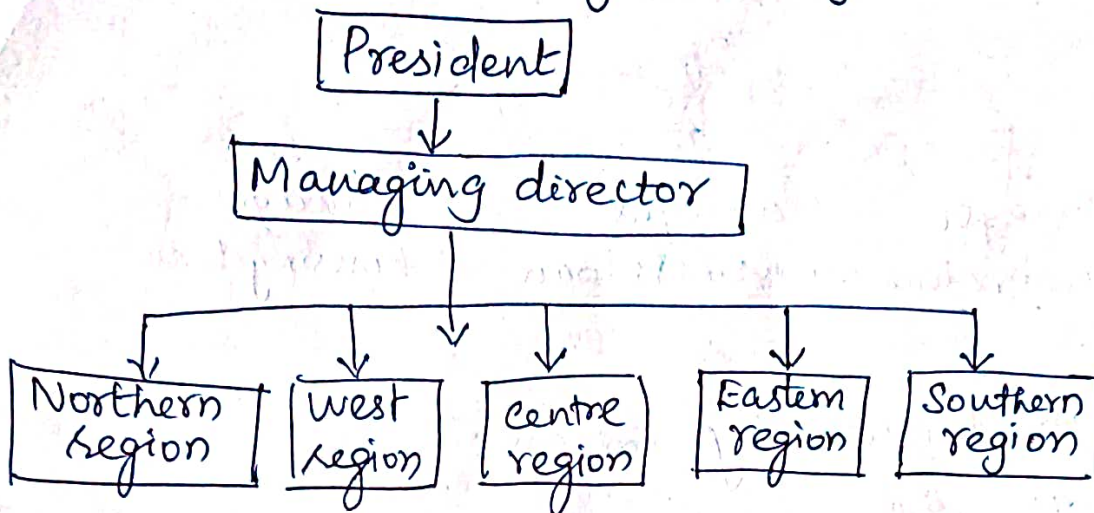 President
Managing director
Northern
region
west
region
centre
region
Eastern
region
Southern
region